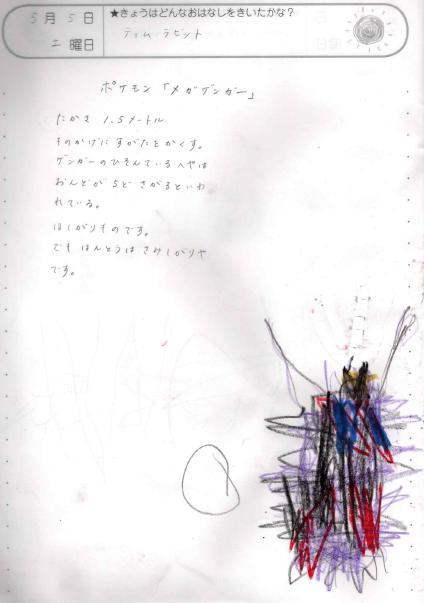 5月5日
土曜日
★きょうはどんなおはなしをきいたかな？
ティム ラビット
ポケモン「メガゲンガー」
たかさ 1.5メートル
そのかげに すがたを かくす。
ゲンガーの ひそんでいる へやは
おんどが 5ど さがる といわ
れている。
ほしがりものです。
でも ほんとうは さみしがりや
です。